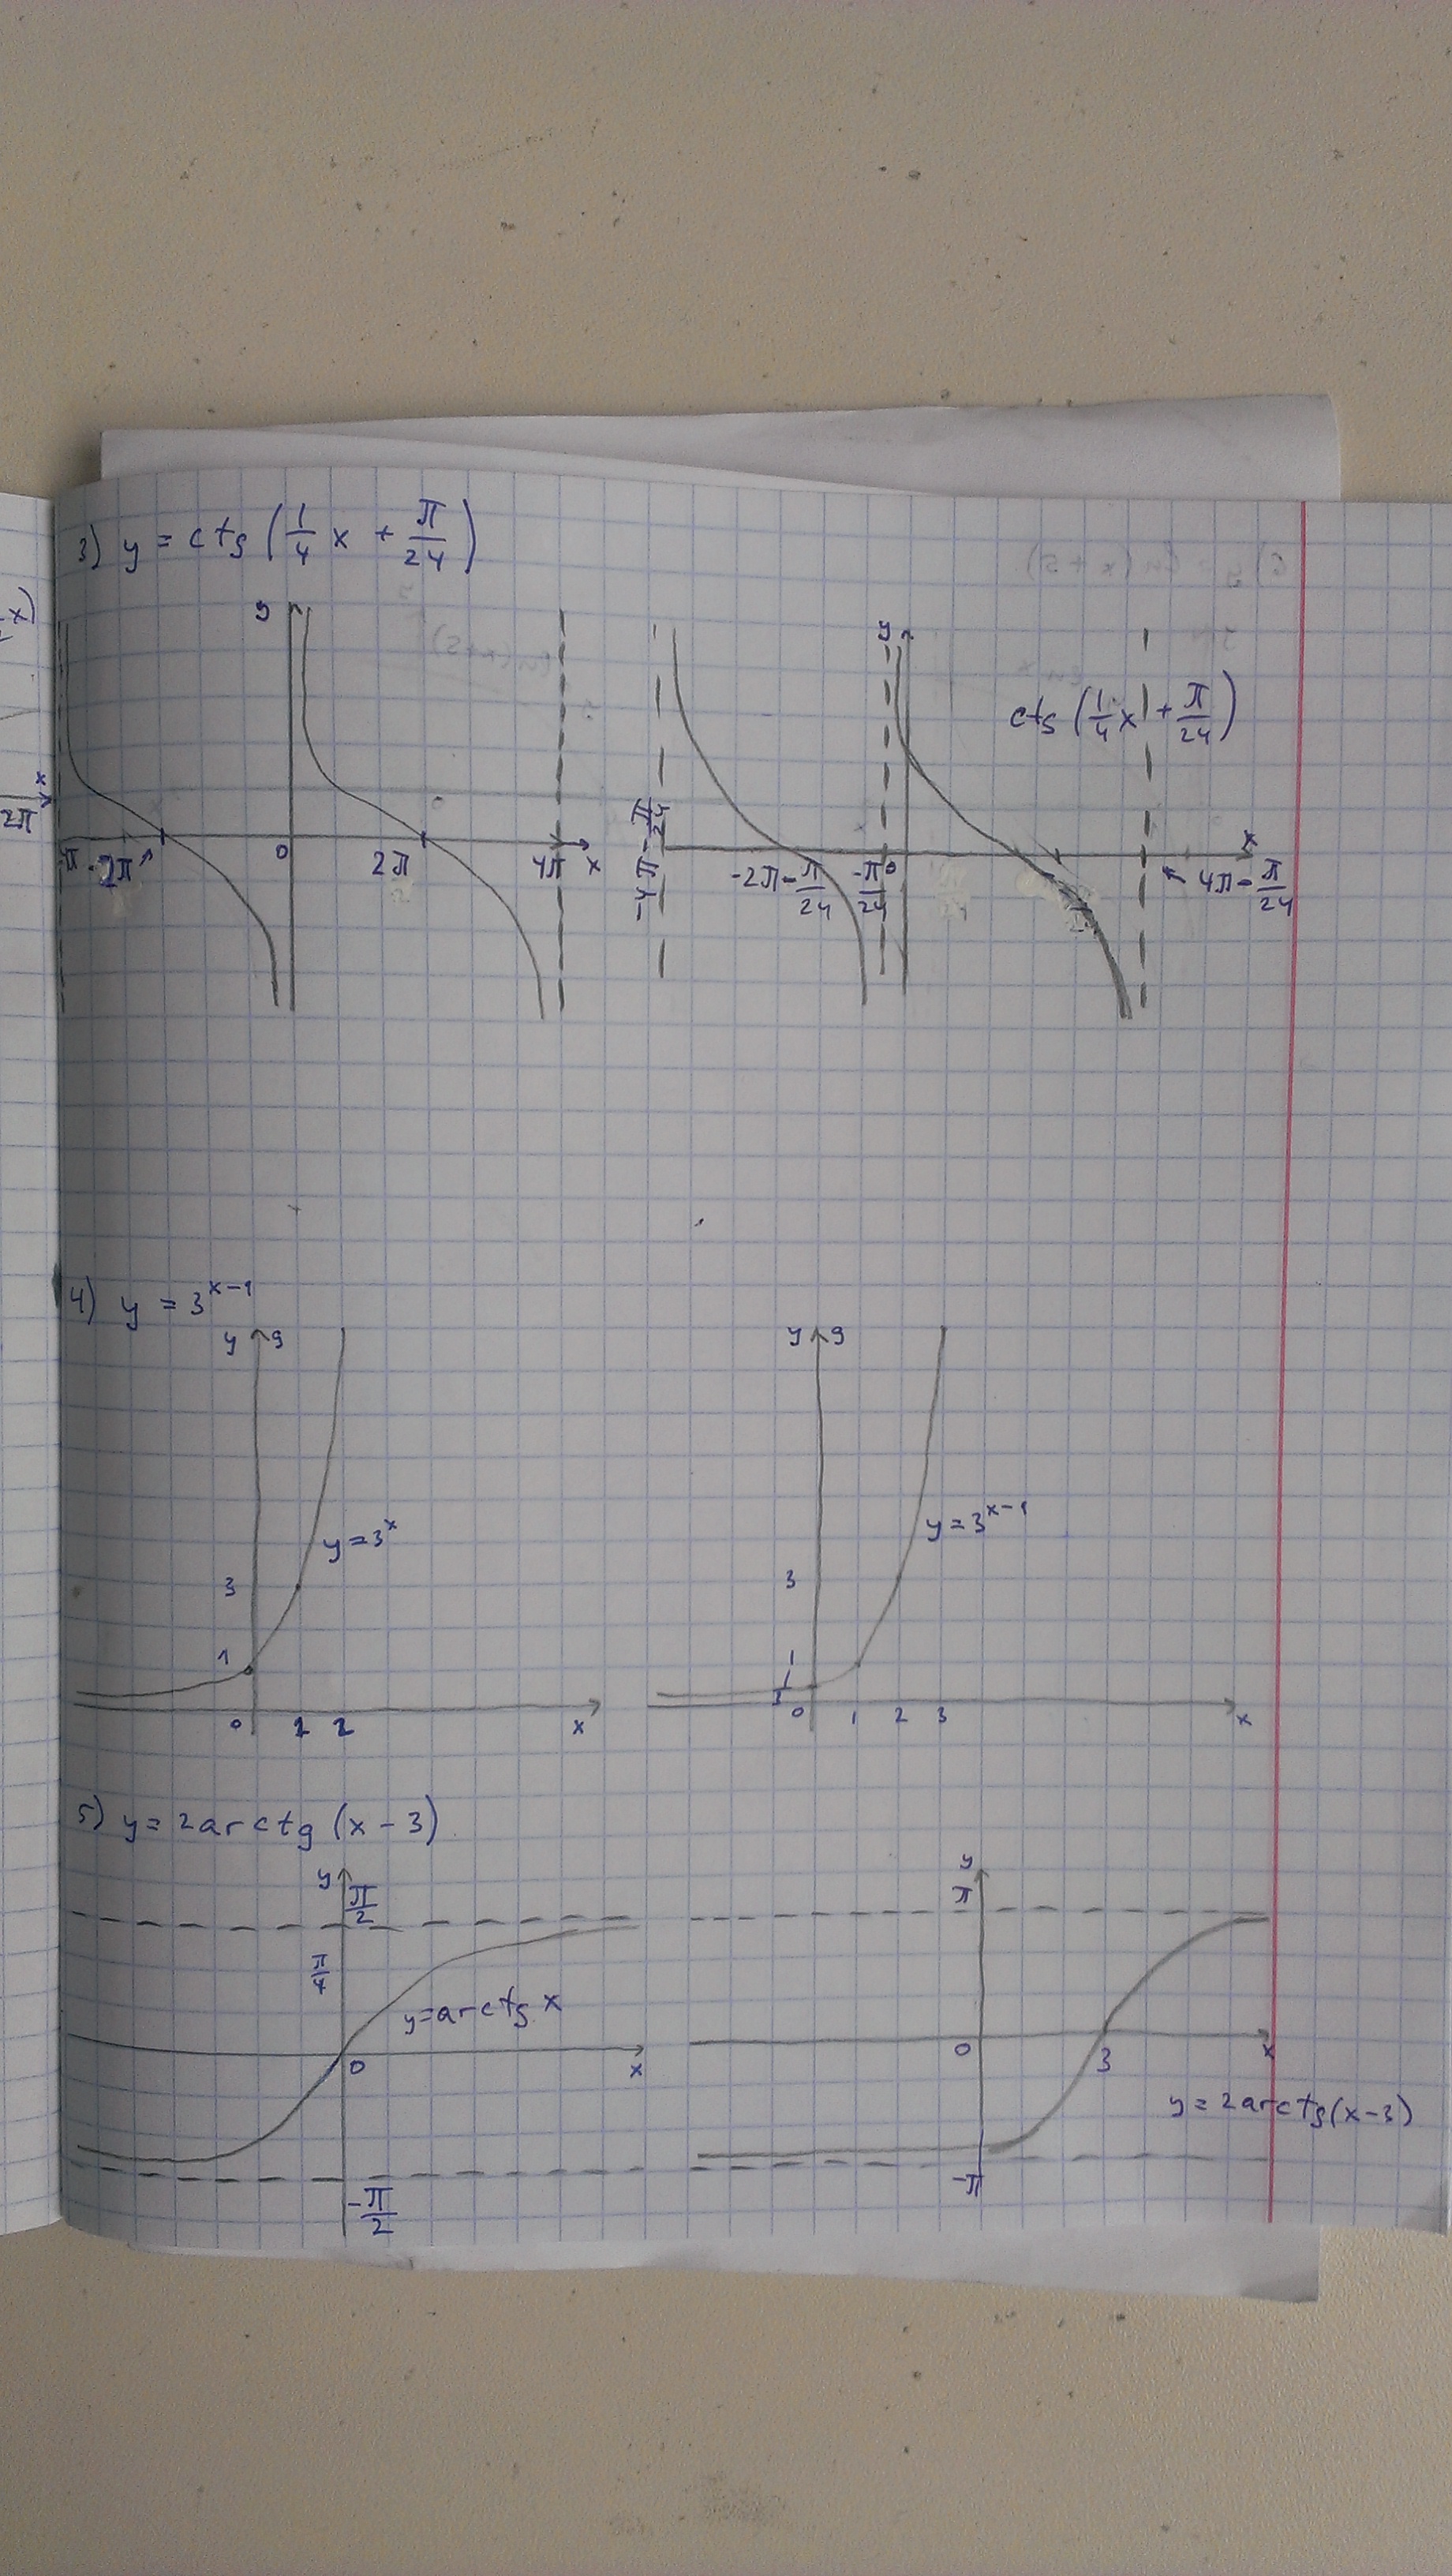 3) y = ctg (1/4 x + π/24)
x)
y
ctg (1/4 x + π/24)
y
x
2π
-2π
0
2π
4π
x
-4π-π/24
-2π-π/24
-π/24
0
x
4π-π/24
4) y = 3^(x-1)
y 9
y = 3^x
3
1
0 1 2 x
y 9
y = 3^(x-1)
3
1
1/3
0 1 2 3 x
5) y = 2arctg (x-3)
y
π/2
π/4
y=arctg x
0
x
-π/2
y
π
0
3
x
y = 2arctg(x-3)
-π